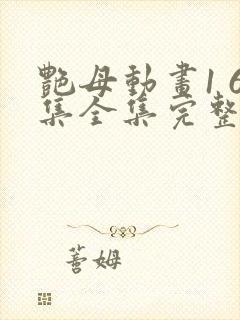 艷母動畫1 6
集全集完整
薈姆